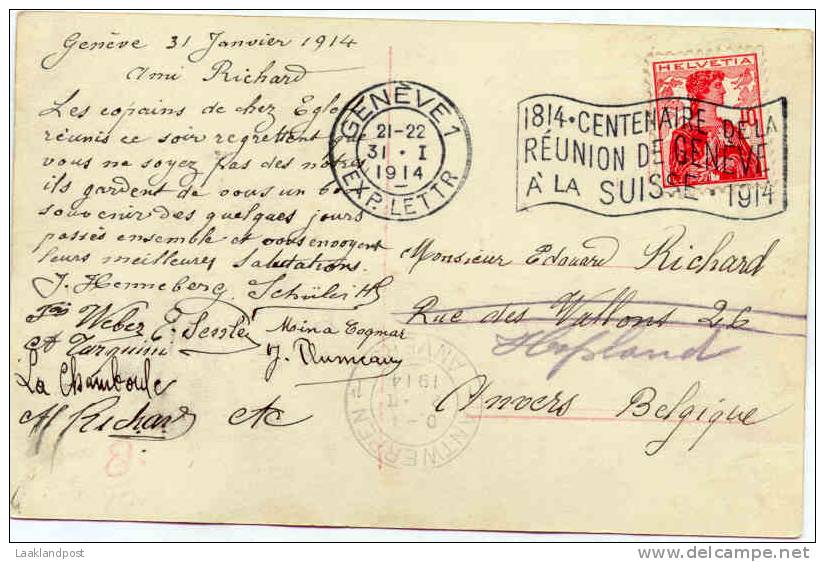 Genève 31 Janvier 1914
Ami Richard
Les copains de chez Egle
réunis ce soir regrettent
vous ne soyez pas des notres
ils gardent de vous un
souvenir des quelques jours
passés ensemble et vous envoyent
leurs meilleures salutations.
J. Henneberg.
Weber
Tarquini
Mina
La Chamboule
Richard etc
GENÈVE 1
21-22
31 · I
1914
EXP. LETTR
HELVETIA
10
1814 · CENTENAIRE DE LA
RÉUNION DE GENÈVE
À LA SUISSE · 1914
Monsieur Edouard Richard
Rue des Wallons 26
Hopland
Anvers Belgique
ANTWERPEN 1
ANVERS
1914
Laaklandpost
delcampe.net